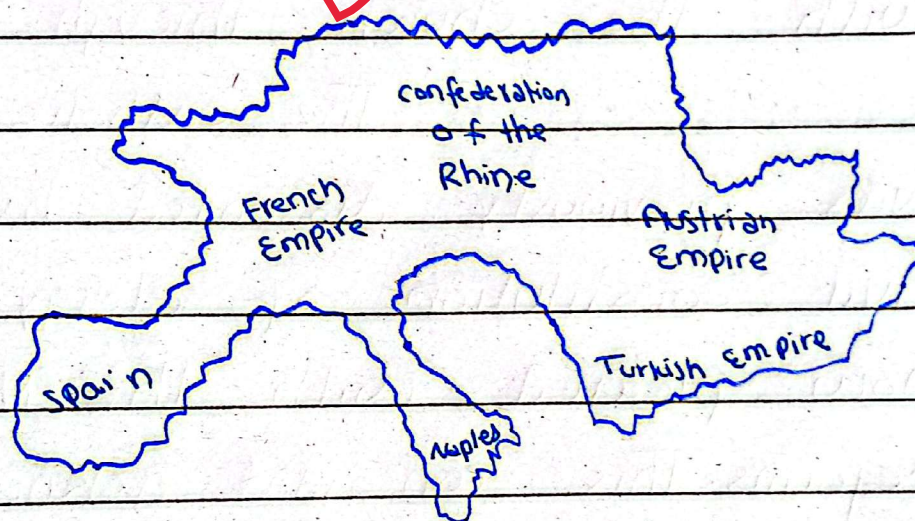 confederation
of the
Rhine
French
Empire
Austrian
Empire
Turkish Empire
Spain
Naples